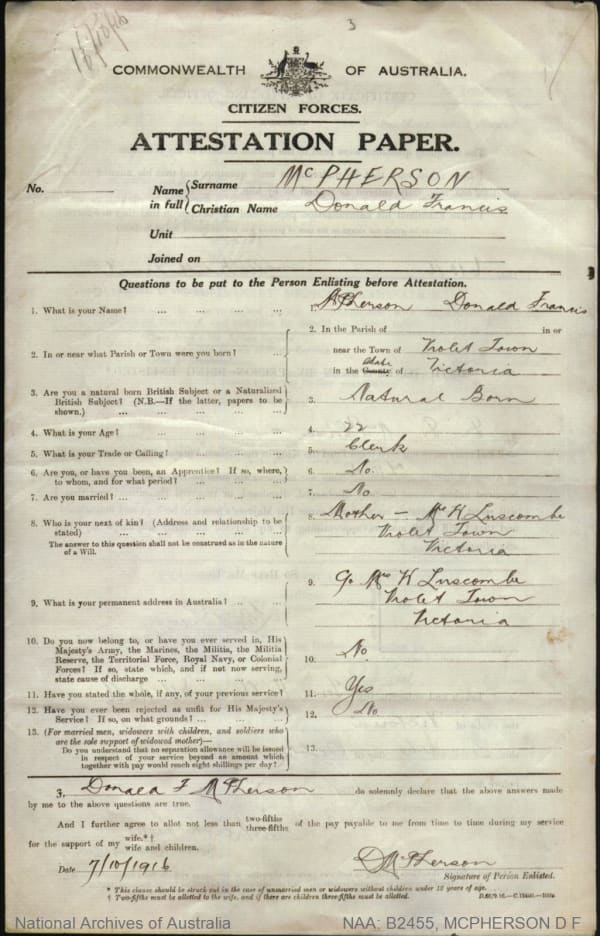 3
COMMONWEALTH OF AUSTRALIA.
CITIZEN FORCES.
ATTESTATION PAPER.
No.
Name in full { Surname McPHERSON
Christian Name Donald Francis
Unit
Joined on
Questions to be put to the Person Enlisting before Attestation.
1. What is your Name? ... ... ... ... 1. McPherson Donald Francis
2. In or near what Parish or Town were you born? ... ...
2. In the Parish of in or
near the Town of Violet Town
in the County State of Victoria
3. Are you a natural born British Subject or a Naturalized
British Subject? (N.B.—If the latter, papers to be
shown.) ... ... ... ...
3. Natural Born
4. What is your Age? ... ... ... ... 4. 22
5. What is your Trade or Calling? ... ... ... 5. Clerk
6. Are you, or have you been, an Apprentice? If so, where,
to whom, and for what period? ... ... ...
6. No.
7. Are you married? ... ... ... ... 7. No
8. Who is your next of kin? (Address and relationship to be
stated) ... ... ... ...
The answer to this question shall not be construed as in the nature
of a Will.
8. Mother – Mrs H Luscombe
Violet Town
Victoria
9. What is your permanent address in Australia? ... ...
9. C/o Mrs H Luscombe
Violet Town
Victoria
10. Do you now belong to, or have you ever served in, His
Majesty's Army, the Marines, the Militia, the Militia
Reserve, the Territorial Force, Royal Navy, or Colonial
Forces? If so, state which, and if not now serving,
state cause of discharge ... ... ...
10. No
11. Have you stated the whole, if any, of your previous service? 11. Yes
12. Have you ever been rejected as unfit for His Majesty's
Service? If so, on what grounds? ... ... ...
12. No
13. (For married men, widowers with children, and soldiers who
are the sole support of widowed mother)—
Do you understand that no separation allowance will be issued
in respect of your service beyond an amount which
together with pay would reach eight shillings per day?
13.
I, Donald F McPherson do solemnly declare that the above answers made
by me to the above questions are true.
And I further agree to allot not less than two-fifths three-fifths of the pay payable to me from time to time during my service
for the support of my wife.*† wife and children.
Date 7/10/1916 D McPherson
Signature of Person Enlisted.
* This clause should be struck out in the case of unmarried men or widowers without children under 18 years of age.
† Two-fifths must be allotted to the wife, and if there are children three-fifths must be allotted.
National Archives of Australia NAA: B2455, MCPHERSON D F